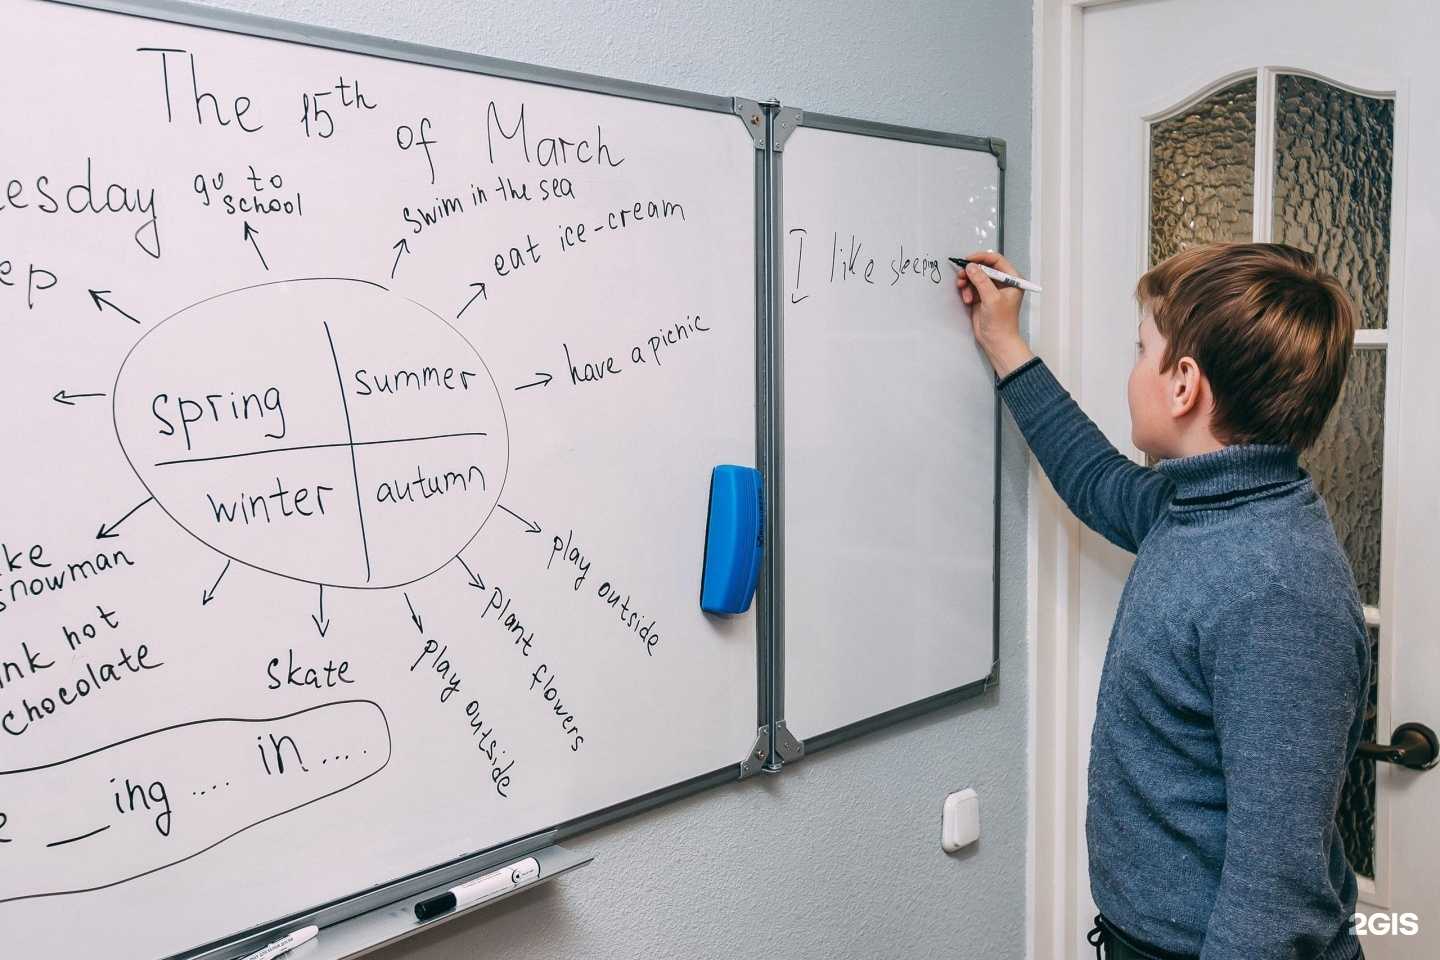 The 15th of March
esday
go to
school
swim in the sea
eat ice-cream
ep
have a picnic
spring
summer
winter
autumn
ke
snowman
nk hot
chocolate
skate
play outside
plant flowers
play outside
e __ing .... in ....
I like sleeping
2GIS